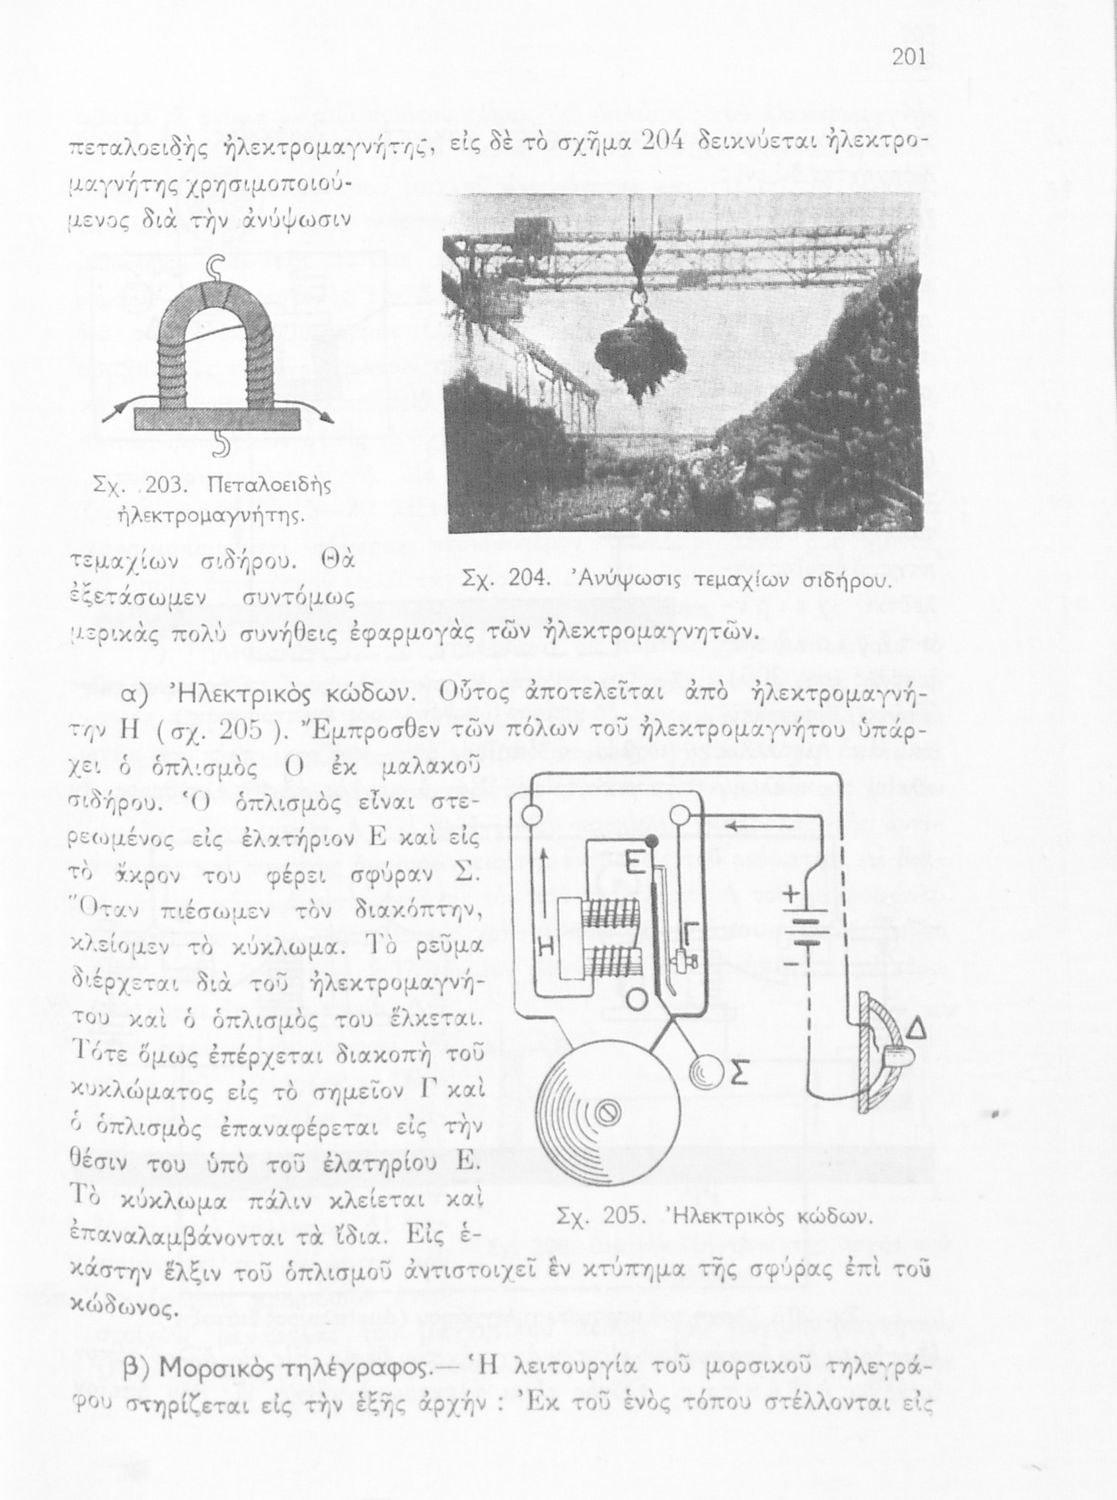 201
πεταλοειδὴς ἠλεκτρομαγνήτης, εἰς δὲ τὸ σχῆμα 204 δεικνύεται ἠλεκτρο-
μαγνήτης χρησιμοποιού-
μενος διὰ τὴν ἀνύψωσιν
Σχ. 203. Πεταλοειδὴς
ἠλεκτρομαγνήτης.
τεμαχίων σιδήρου. Θὰ
ἐξετάσωμεν συντόμως
Σχ. 204. Ἀνύψωσις τεμαχίων σιδήρου.
μερικὰς πολὺ συνήθεις ἐφαρμογὰς τῶν ἠλεκτρομαγνητῶν.
α) Ἠλεκτρικὸς κώδων. Οὗτος ἀποτελεῖται ἀπὸ ἠλεκτρομαγνή-
την Η (σχ. 205 ). Ἔμπροσθεν τῶν πόλων τοῦ ἠλεκτρομαγνήτου ὑπάρ-
χει ὁ ὁπλισμὸς Ο ἐκ μαλακοῦ
σιδήρου. Ὁ ὁπλισμὸς εἶναι στε-
ρεωμένος εἰς ἐλατήριον Ε καὶ εἰς
τὸ ἄκρον του φέρει σφύραν Σ.
Ὅταν πιέσωμεν τὸν διακόπτην,
κλείομεν τὸ κύκλωμα. Τὸ ρεῦμα
διέρχεται διὰ τοῦ ἠλεκτρομαγνή-
του καὶ ὁ ὁπλισμὸς του ἕλκεται.
Τότε ὅμως ἐπέρχεται διακοπὴ τοῦ
κυκλώματος εἰς τὸ σημεῖον Γ καὶ
ὁ ὁπλισμὸς ἐπαναφέρεται εἰς τὴν
θέσιν του ὑπὸ τοῦ ἐλατηρίου Ε.
Τὸ κύκλωμα πάλιν κλείεται καὶ
ἐπαναλαμβάνονται τὰ ἴδια. Εἰς ἑ-
Ε
Η
Γ
Ο
Σ
+
−
Δ
Σχ. 205. Ἠλεκτρικὸς κώδων.
κάστην ἕλξιν τοῦ ὁπλισμοῦ ἀντιστοιχεῖ ἓν κτύπημα τῆς σφύρας ἐπὶ τοῦ
κώδωνος.
β) Μορσικὸς τηλέγραφος.— Ἡ λειτουργία τοῦ μορσικοῦ τηλεγρά-
φου στηρίζεται εἰς τὴν ἑξῆς ἀρχήν : Ἐκ τοῦ ἑνὸς τόπου στέλλονται εἰς